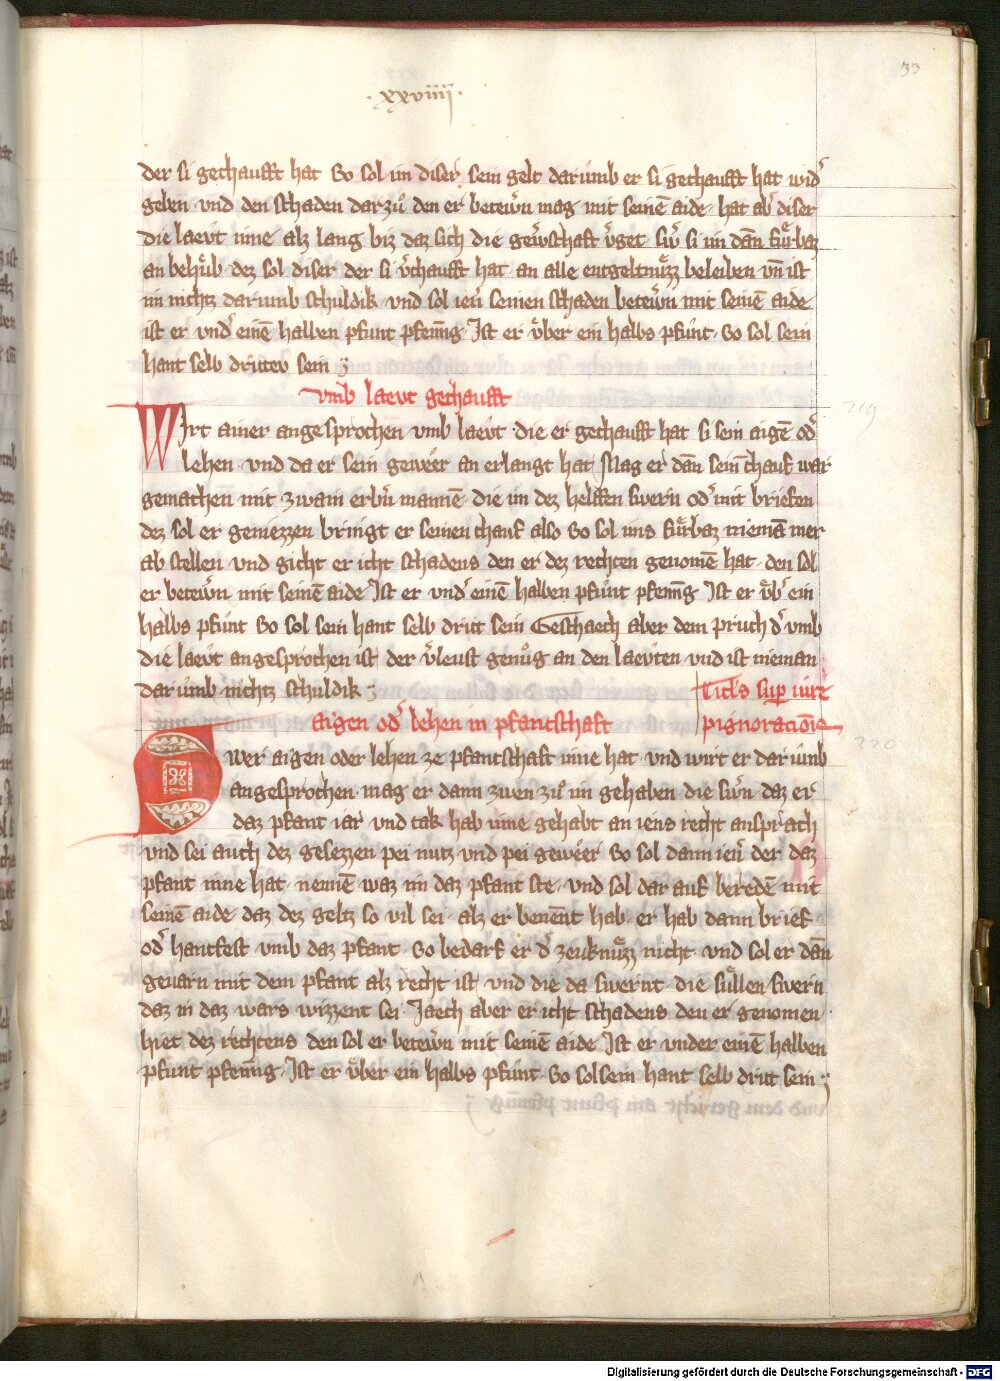 33
·xxviiij·
der si gechaufft hat So sol im diser sein gelt darumb er si gechaufft hat wid᷑
geben · vnd den schaden darzů den er betewrn mag mit seinē aide · hat ab᷑ diser
die laeut inne alz lang biz daz sich die gewschaft v᷑get · si im dān fuͤrbaz
an behuͤb · dez sol diser der si v᷑chaufft hat · an alle entgeltnuͤzz beleiben vn̄ ist
im nichtz darumb schuldik · vnd sol ien᷑ seinen schaden betewrn mit seinē aide
ist er vnd᷑ einē halben pfunt pfenīg · Ist er uͤber ein halbs pfunt · So sol sein
hant selb dritteu sein
vmb laeut gechaufft
Wirt ainer angesprochen vmb laeut · die er gechaufft hat si sein aigē od᷑
lehen · vnd da er sein geweer an erlangt hat Mag er dān sein chauf war
gemachen mit zwain erb᷑n mannē · die im dez helffen swern od᷑ mit briefen
dez sol er geniezzen bringt er seinen chauf also So sol ims fuͤrbaz niemā mer
ab stellen · vnd gicht er icht schadens den er dez rechten genomē hat · den sol
er betewrn mit seinē aide Ist er vnd᷑ einē halben pfunt pfenīg Ist er uͤb᷑ ein
halbs pfunt So sol sein hant selb dritt sein Geschaech aber dem pruch d᷑ vmb
die laeut angesprochen ist der v᷑leust genůg an den laeuten · vnd ist nieman
darumb nichtz schuldik
Titl's sup iure
aigen od᷑ lehen in pfantschaft
pignoracōnie
219
220
Swer aigen oder lehen ze pfantschaft inne hat · vnd wirt er darumb
angesprochen · mag er dann zwen zů im gehaben die swrn daz er
daz pfant iar vnd tak hab inne gehabt an iens recht ansprach
vnd sei auch dez gesezzen pei nutz vnd pei geweer So sol dann ien᷑ der daz
pfant inne hat · nennē waz im daz pfant ste · vnd sol dar auf beredē mit
seinē aide · daz dez geltz so vil sei · alz er benent hab · er hab dann brief ·
od᷑ hantfest vmb daz pfant · So bedarf er d᷑ zeuknuͤzz nicht · vnd sol er dān
geuarn mit dem pfant alz recht ist vnd die da swernt · die suͤllen swern
daz in daz wars wizzent sei · Jaech aber er icht schadens den er genomen
hiet dez rechtens den sol er betewrn mit seinē aide Ist er vnder einē halben
pfunt pfenīg · Ist er uͤber ein halbs pfunt · So sol sein hant selb dritt sein
Digitalisierung gefördert durch die Deutsche Forschungsgemeinschaft - DFG